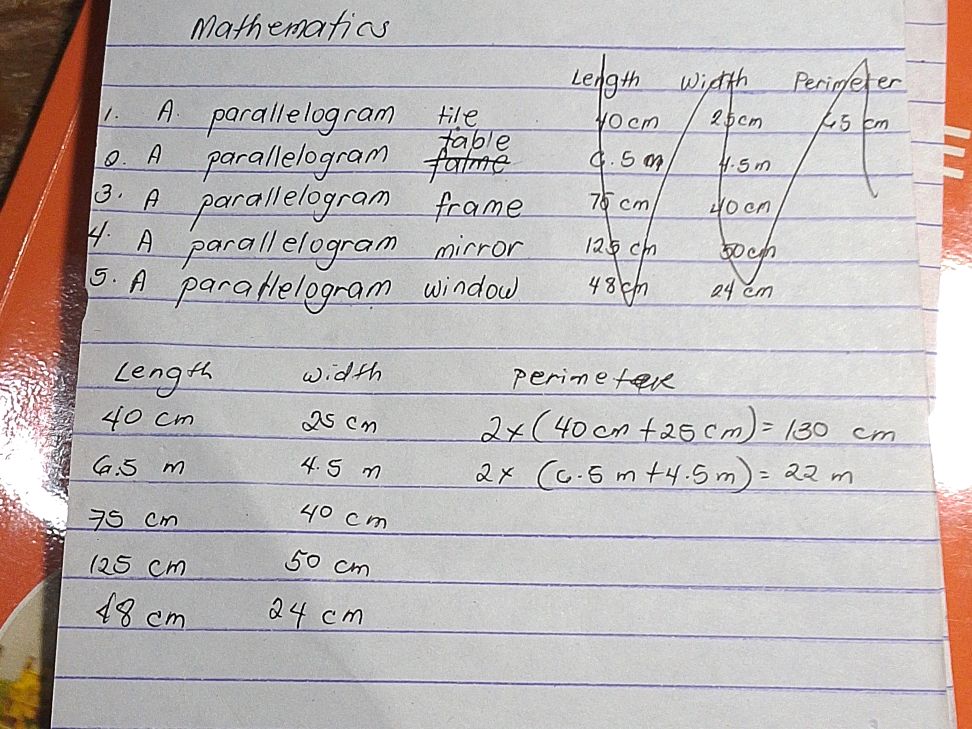 Mathematics
Length Width Perimeter
1. A parallelogram tile 40 cm 25 cm 65 cm
table
2. A parallelogram 6.5 m 4.5 m
3. A parallelogram frame 75 cm 40 cm
4. A parallelogram mirror 125 cm 50 cm
5. A parallelogram window 48 cm 24 cm
Length width perimeter
40 cm 25 cm 2x (40 cm + 25 cm) = 130 cm
6.5 m 4.5 m 2x (6.5 m + 4.5 m) = 22 m
75 cm 40 cm
125 cm 50 cm
48 cm 24 cm